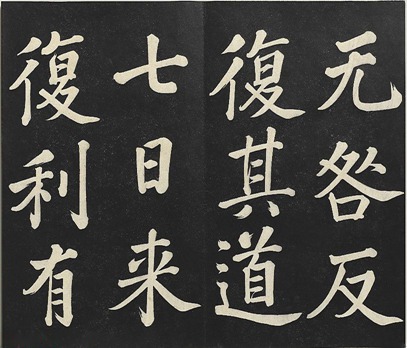 无咎反
復其道
七日来
復利有